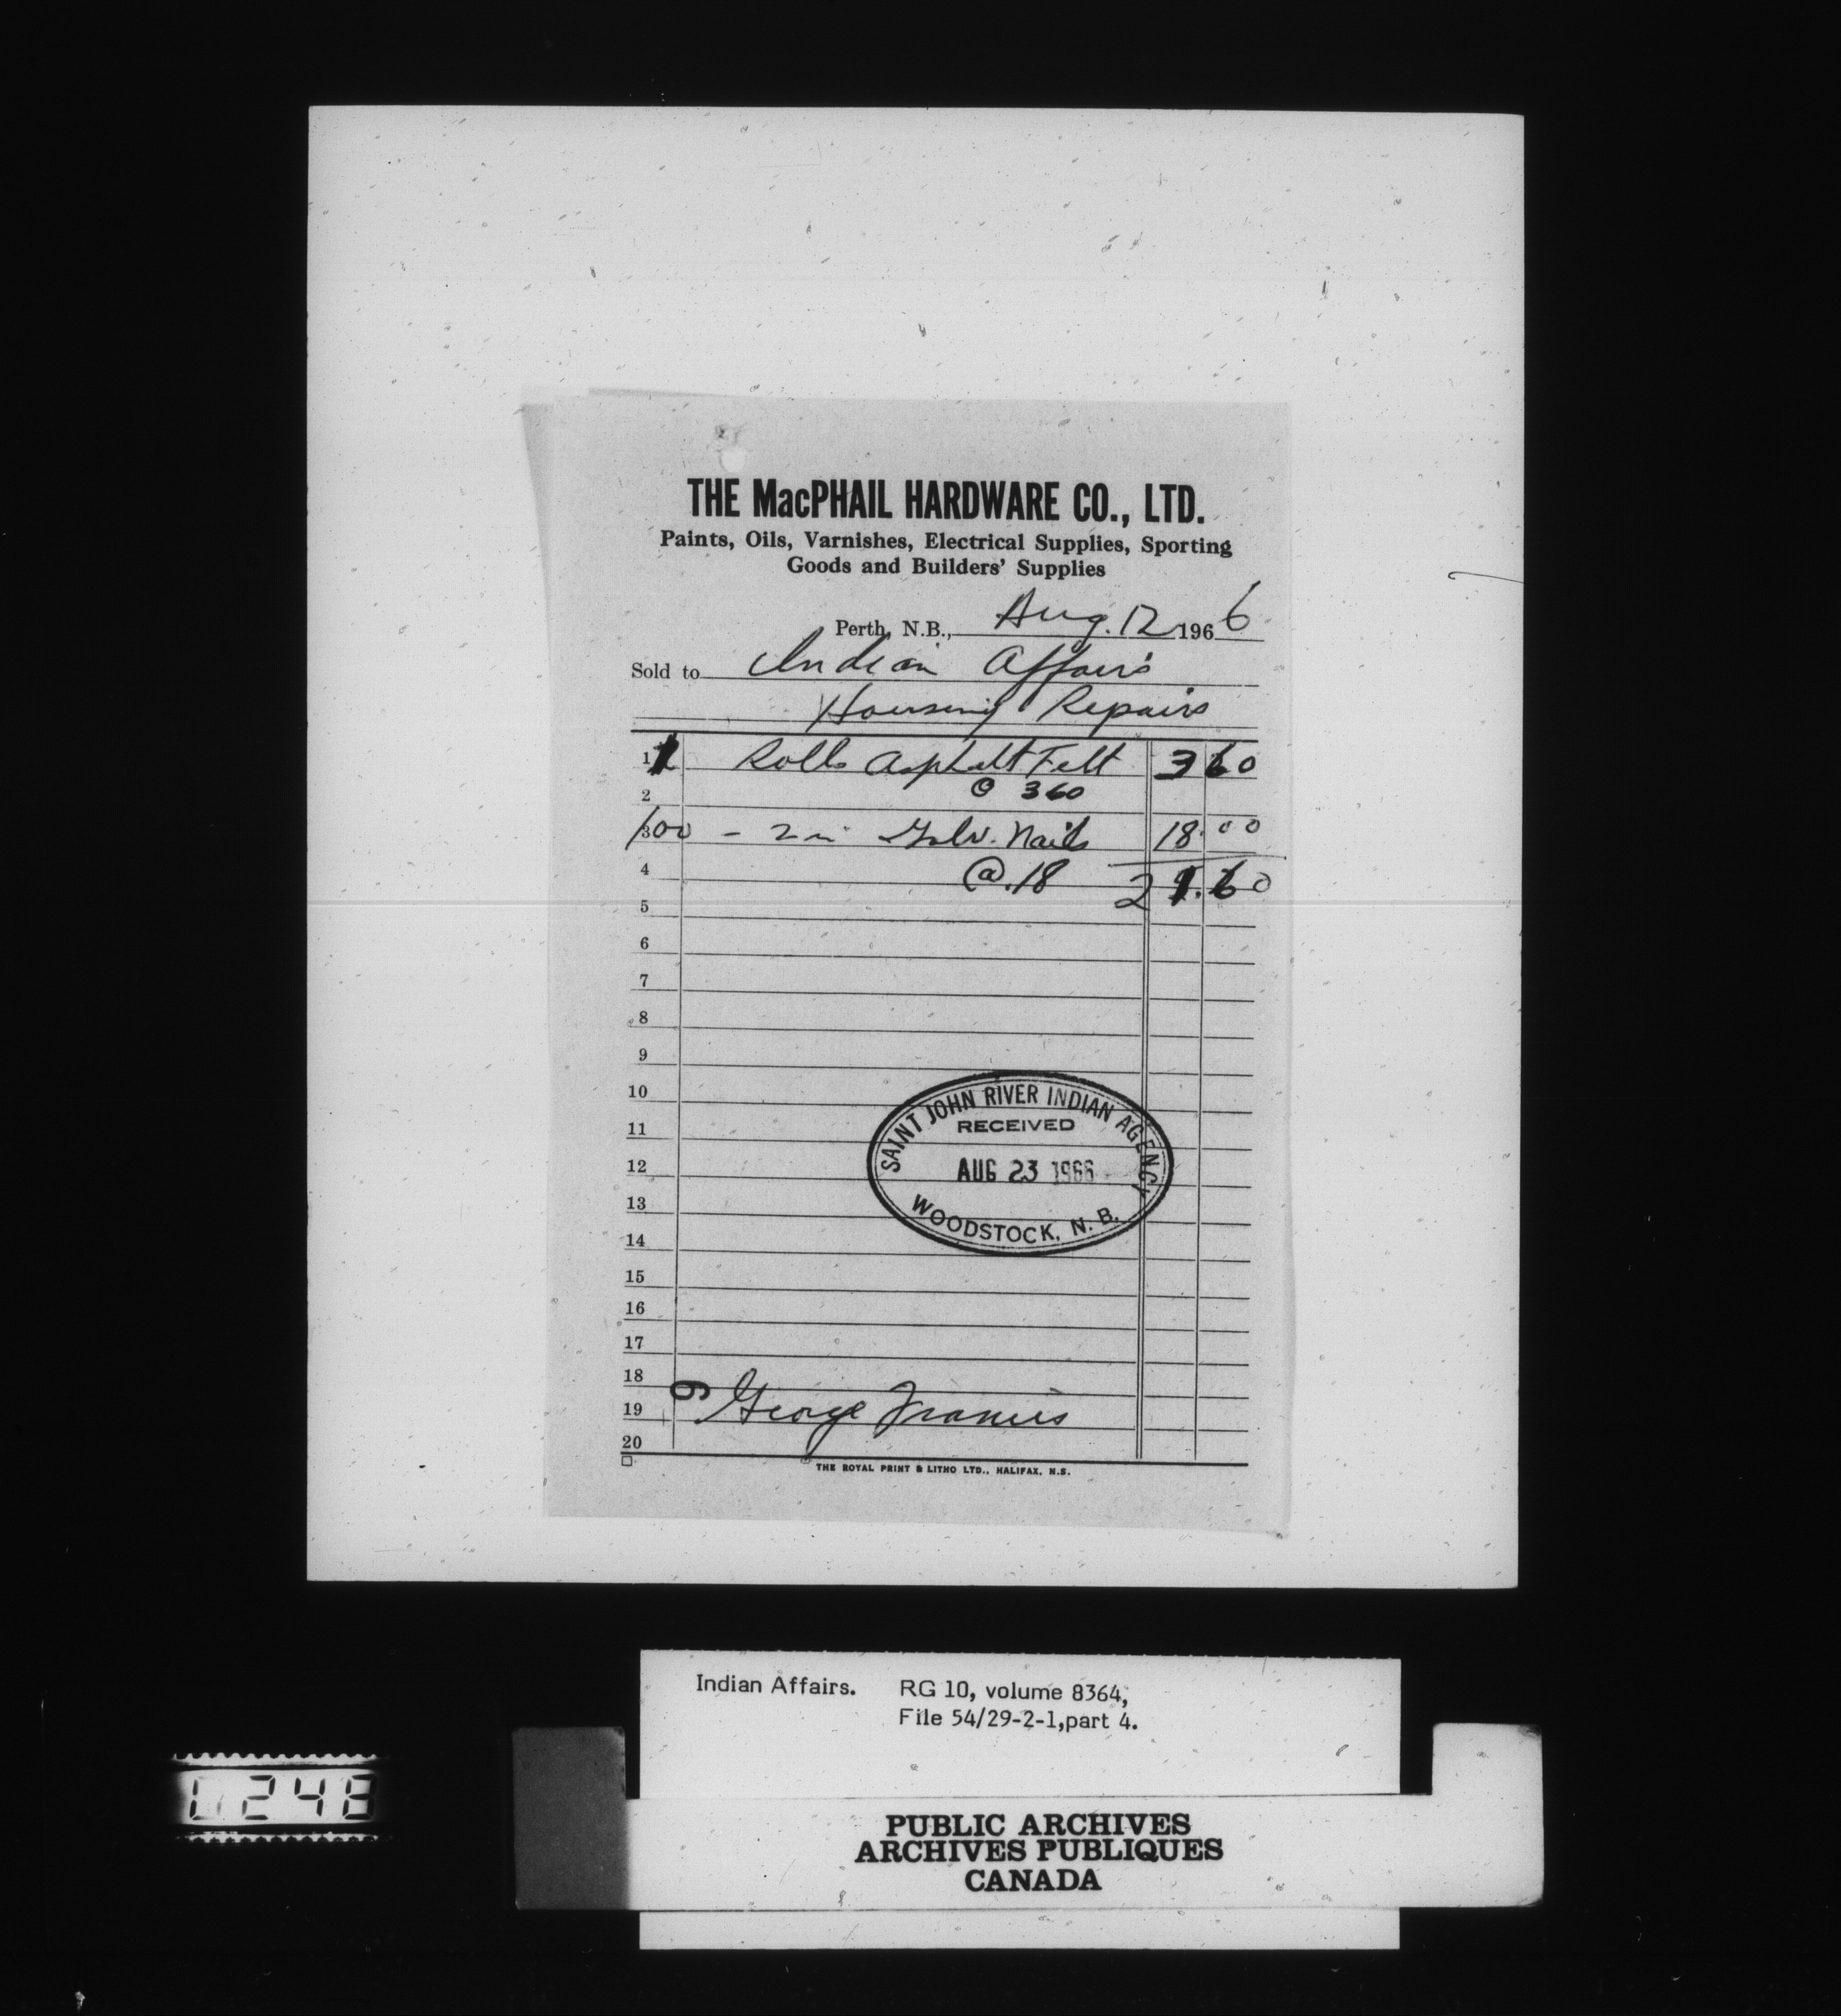 THE MacPHAIL HARDWARE CO., LTD.
Paints, Oils, Varnishes, Electrical Supplies, Sporting
Goods and Builders' Supplies
Perth, N.B., Aug. 12 1966
Sold to Indian Affairs
Housing Repairs
1 1 Rolls Asphalt Felt 3 60
2 @ 360
3 100 - 2 in Galv. Nails 18.00
4 @ .18 21.60
5
6
7
8
9
10
11
12
13
14
15
16
17
18
19 George Francis
20
SAINT JOHN RIVER INDIAN AGENCY
RECEIVED
AUG 23 1966
WOODSTOCK, N. B.
6
THE ROYAL PRINT & LITHO LTD., HALIFAX, N.S.
Indian Affairs. RG 10, volume 8364,
File 54/29-2-1,part 4.
248
PUBLIC ARCHIVES
ARCHIVES PUBLIQUES
CANADA